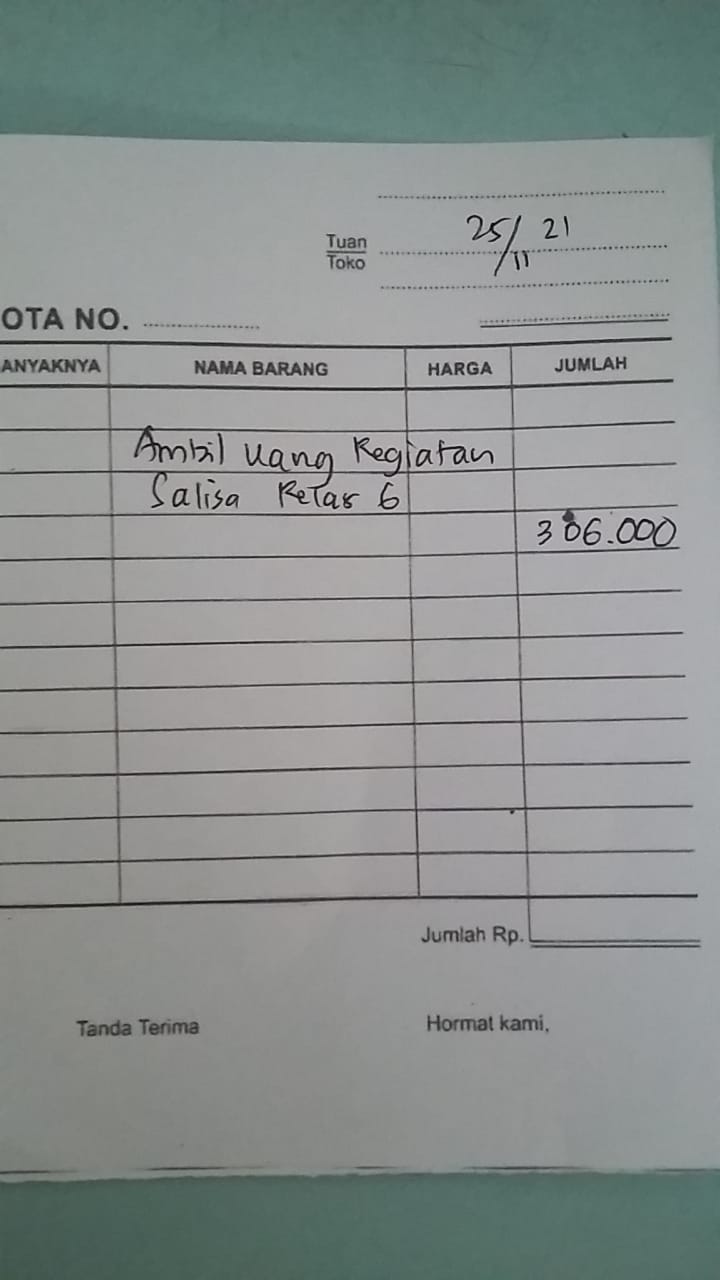 25/11 21
Tuan
Toko
OTA NO.
ANYAKNYA NAMA BARANG HARGA JUMLAH
Ambil uang Kegiatan
Salisa Kelas 6
306.000
Jumlah Rp.
Tanda Terima Hormat kami,